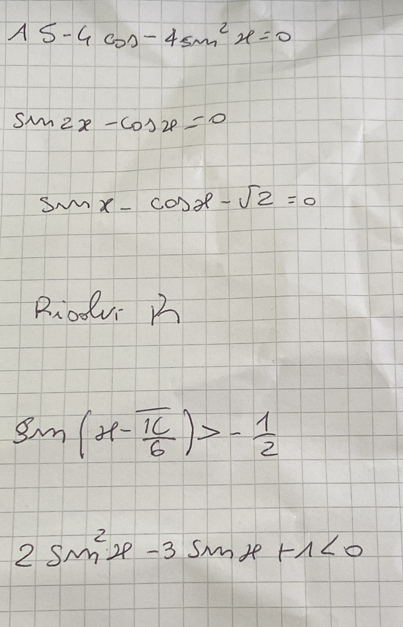 1 5-4 cos-4 sin² x=0
sin2x-cosx=0
sinx-cosx-√2=0
Risolvi
sin(x-π/6)>-1/2
2 sin²x-3 sinx+1<0